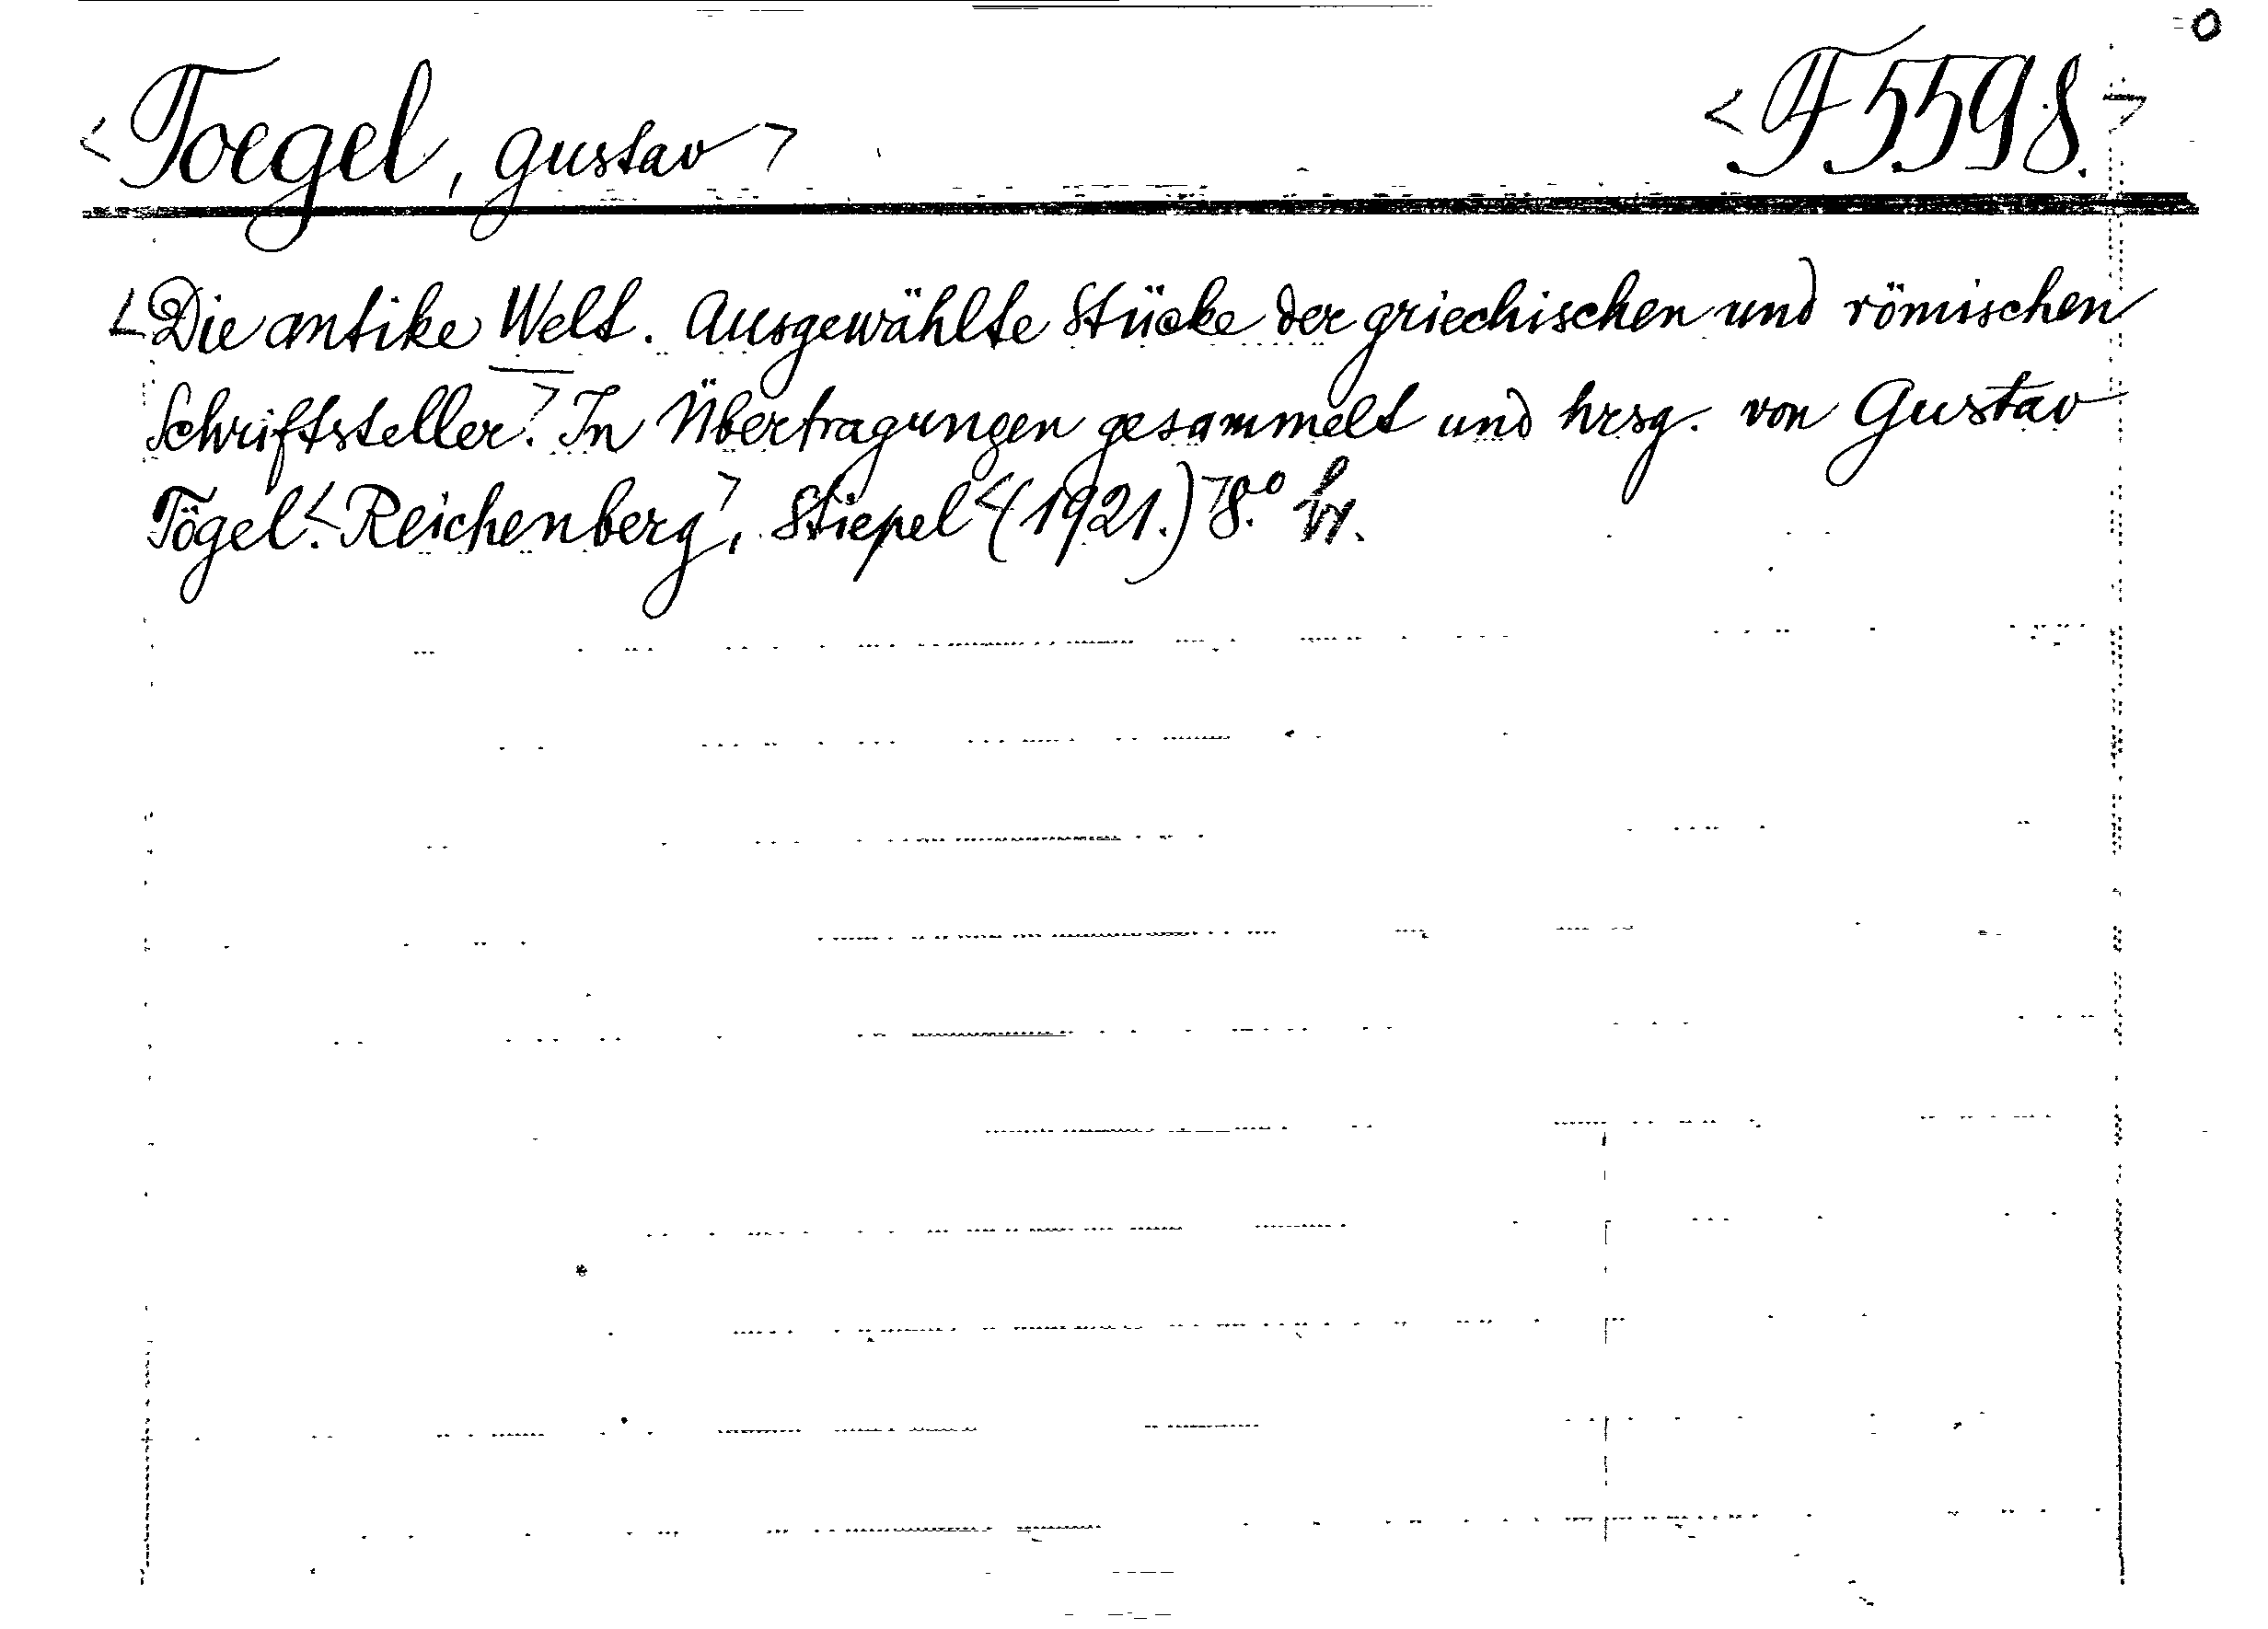 <Toegel, Gustav> <F 5598.>
<Die antike Welt. Ausgewählte Stücke der griechischen und römischen
Schriftsteller.> In Übertragungen gesammelt und hrsg. von Gustav
Tögel. <Reichenberg>, Stiepel <(1921.)> 8.°